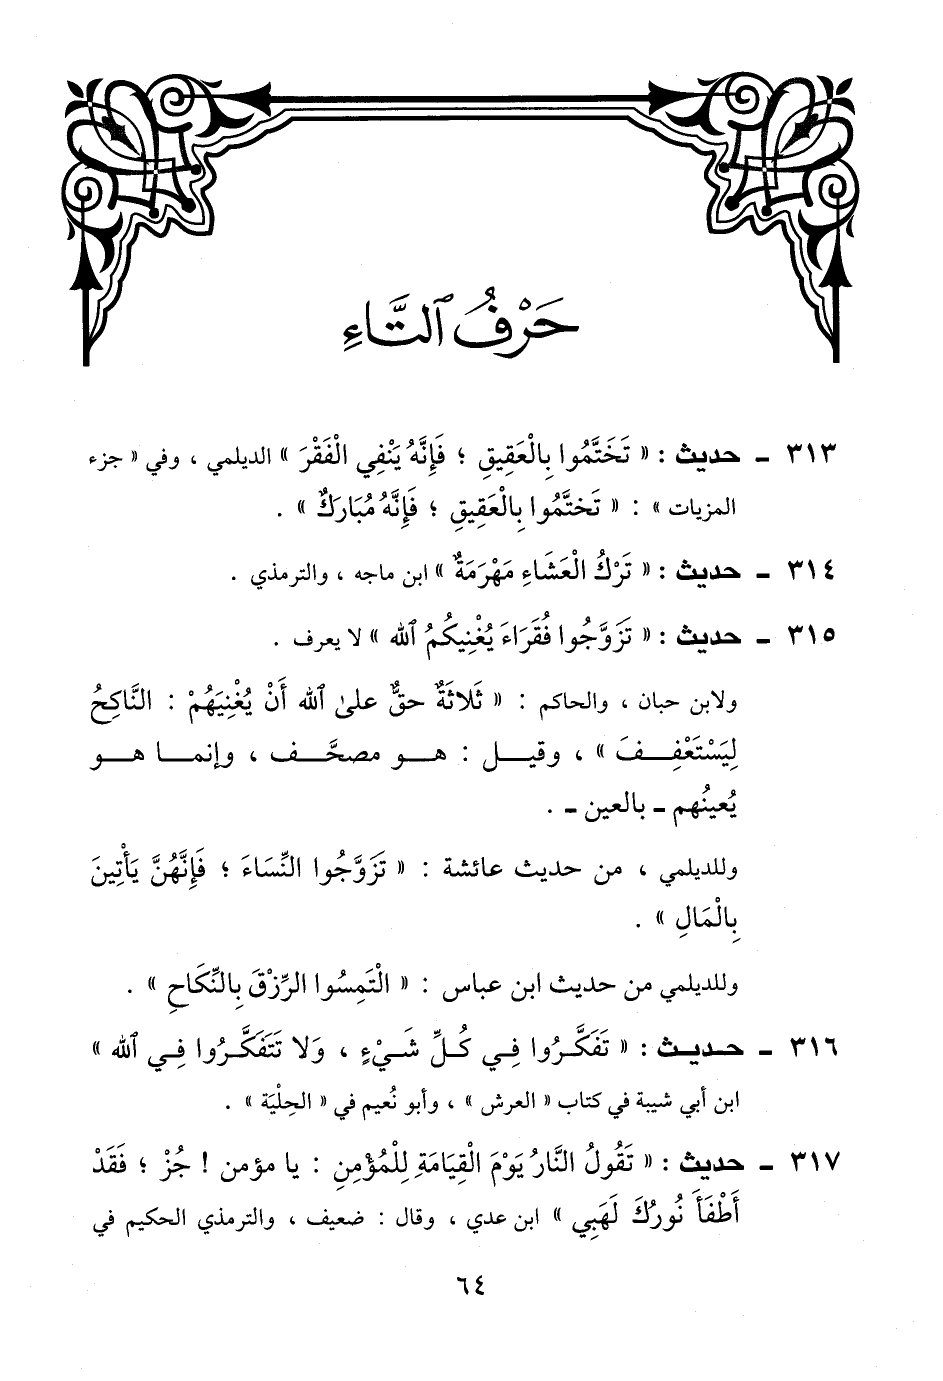 حَرْفُ ٱلتَّاءِ
٣١٣ - حديث : « تَخَتَّمُوا بِالْعَقِيقِ ؛ فَإِنَّهُ يَنْفِي الْفَقْرَ » الديلمي ، وفي « جزء
المزيات » : « تَختَّمُوا بِالْعَقِيقِ ؛ فَإِنَّهُ مُبَارَكٌ » .
٣١٤ - حديث : « تَرْكُ الْعَشَاءِ مَهْرَمَةٌ » ابن ماجه ، والترمذي .
٣١٥ - حديث : « تَزَوَّجُوا فُقَرَاءَ يُغْنِيكُمُ ٱلله » لا يعرف .
ولابن حبان ، والحاكم : « ثَلاثَةٌ حقٌّ علىٰ ٱلله أَنْ يُغْنِيَهُمْ : النَّاكِحُ
لِيَسْتَعْفِـفَ » ، وقيـل : هـو مصحَّـف ، وإنمـا هـو
يُعينُهم - بالعين - .
وللديلمي ، من حديث عائشة : « تَزَوَّجُوا النِّسَاءَ ؛ فَإِنَّهُنَّ يَأْتِينَ
بِالْمَالِ » .
وللديلمي من حديث ابن عباس : « الْتَمِسُوا الرِّزْقَ بِالنِّكَاحِ » .
٣١٦ - حـديـث : « تَفَكَّـرُوا فِـي كُـلِّ شَـيْءٍ ، وَلا تَتَفَكَّـرُوا فِـي ٱلله »
ابن أبي شيبة في كتاب « العرش » ، وأبو نُعيم في « الحِلْيَة » .
٣١٧ - حديث : « تَقُولُ النَّارُ يَوْمَ الْقِيَامَةِ لِلْمُؤْمِنِ : يا مؤمن ! جُزْ ؛ فَقَدْ
أَطْفَأَ نُورُكَ لَهَبِي » ابن عدي ، وقال : ضعيف ، والترمذي الحكيم في
٦٤